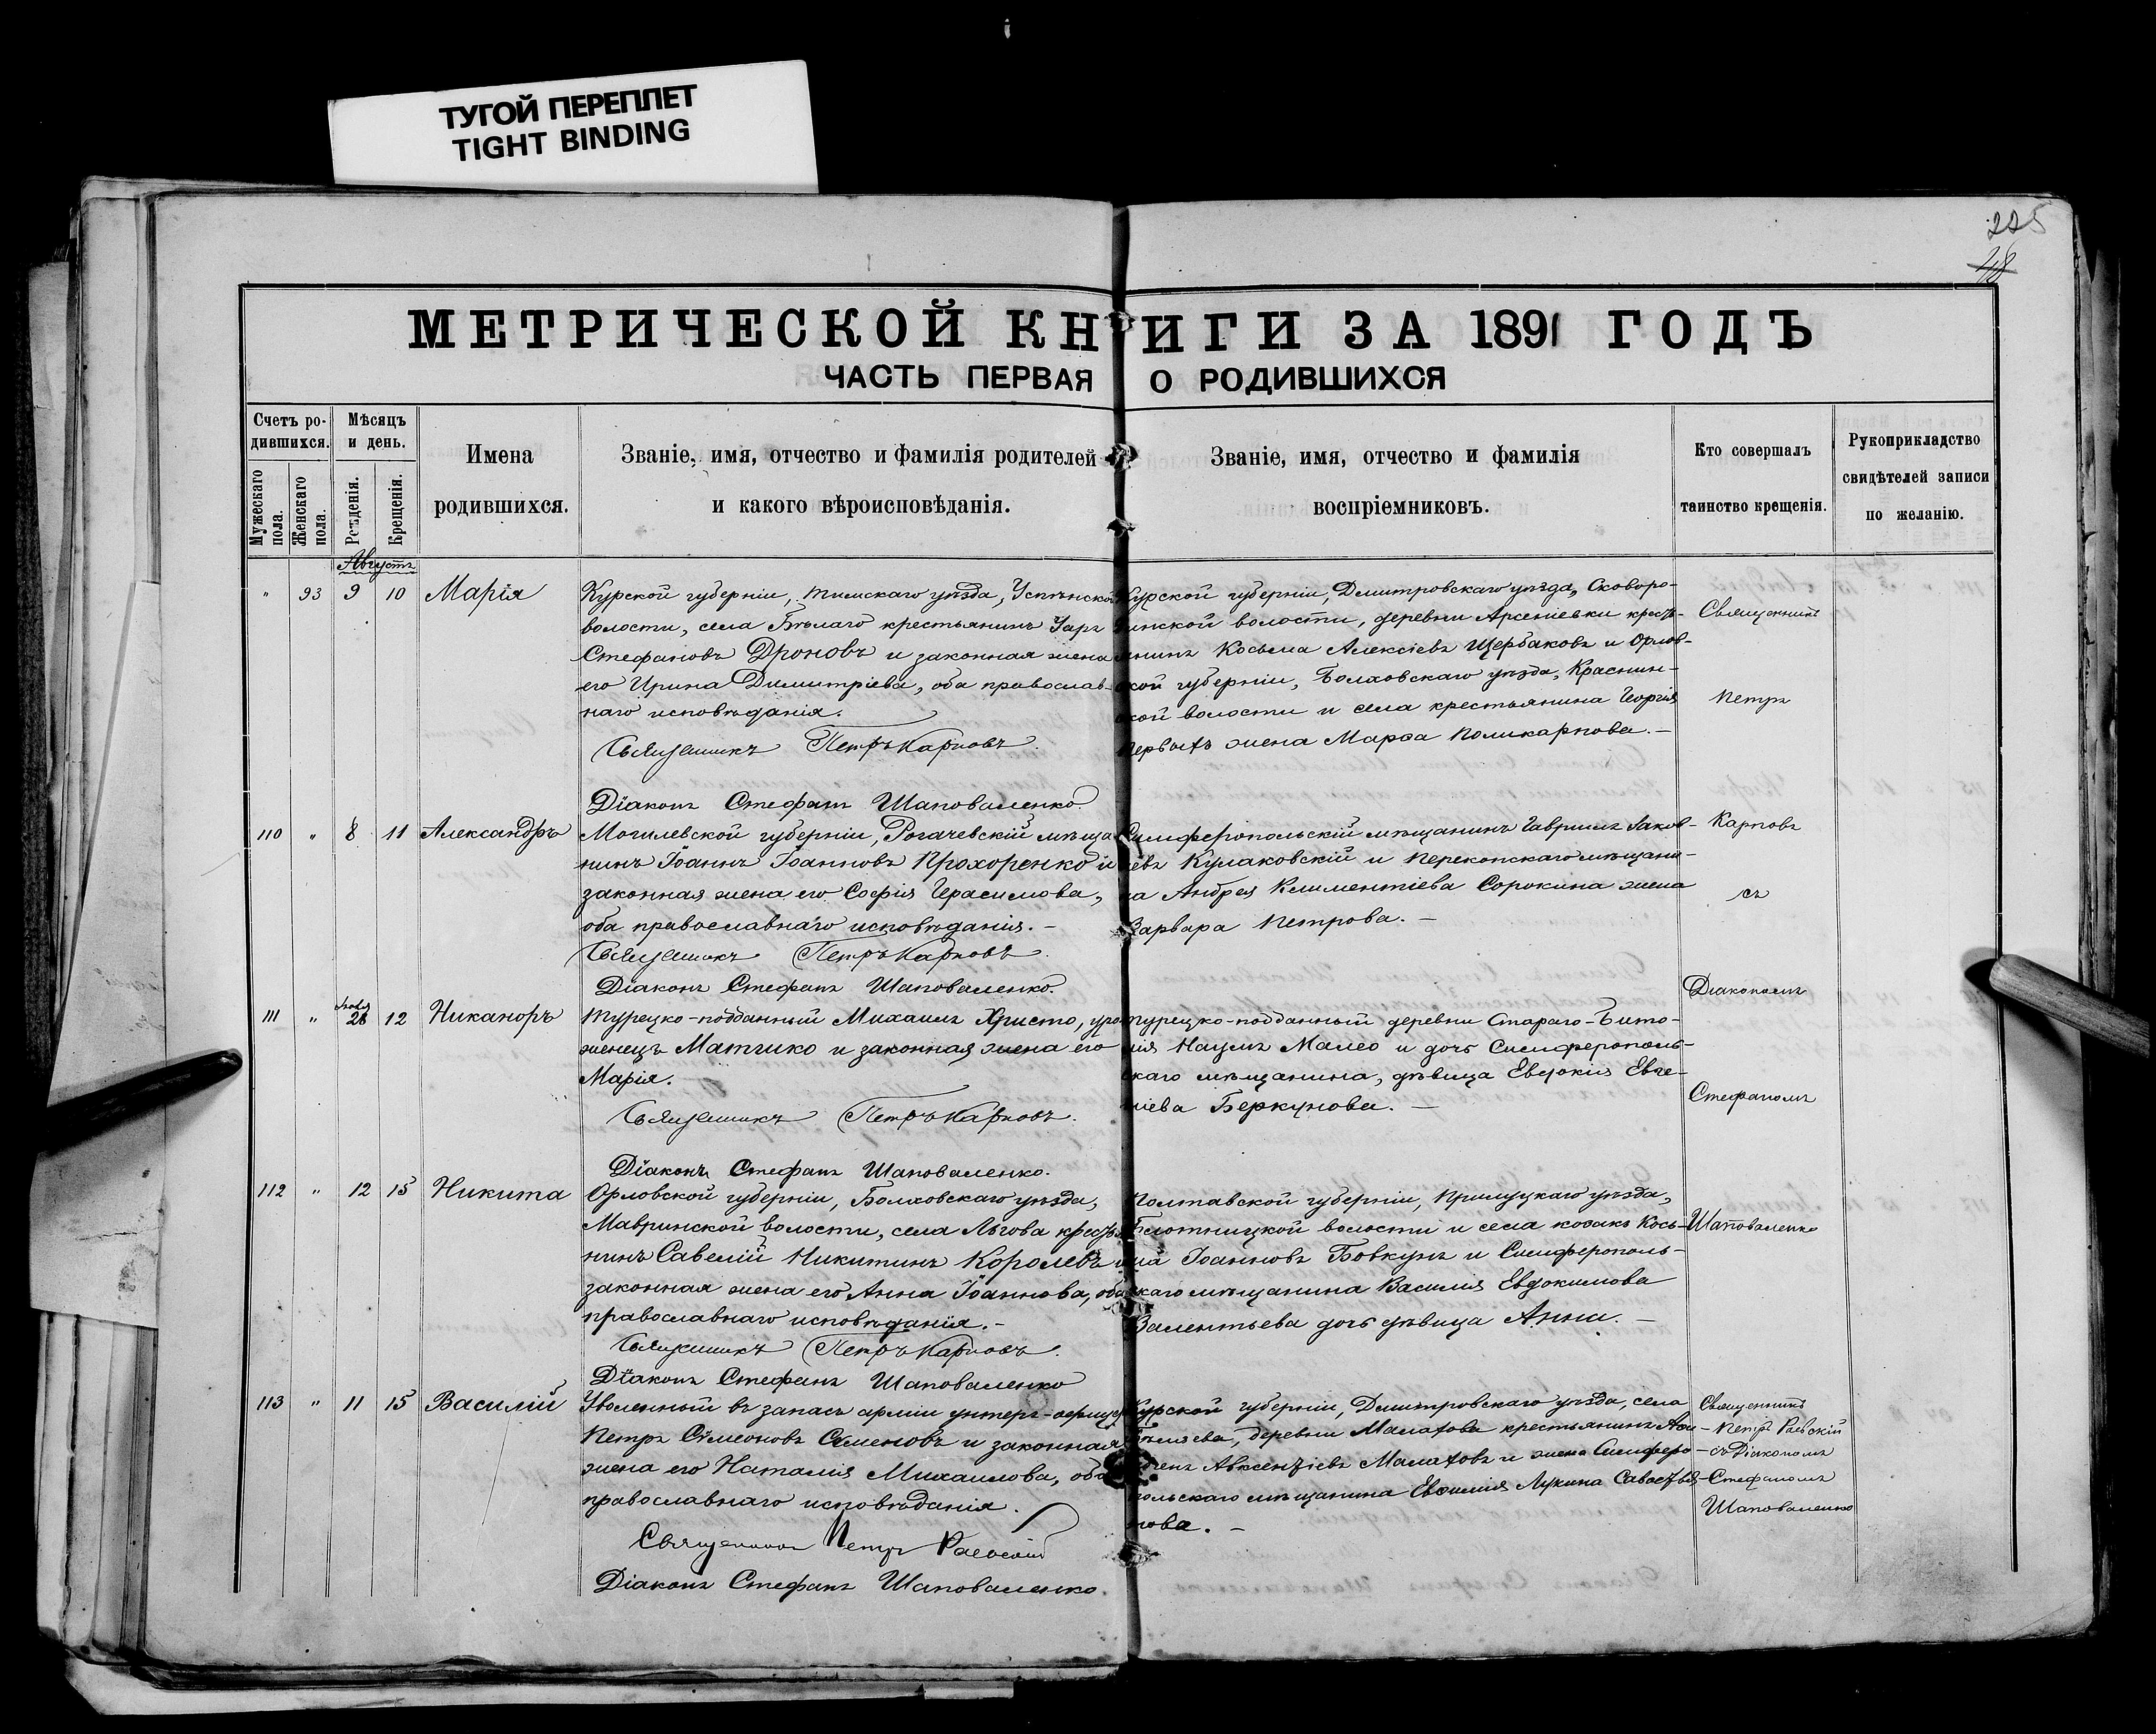 ТУГОЙ ПЕРЕПЛЕТ
TIGHT BINDING
225
48
МЕТРИЧЕСКОЙ КНИГИ ЗА 1891 ГОДЪ
ЧАСТЬ ПЕРВАЯ О РОДИВШИХСЯ
Счетъ ро-
дившихся.
Мужескаго
пола.
Женскаго
пола.
Мѣсяцъ
и день.
Рожденія.
Крещенія.
Имена
родившихся.
Званіе, имя, отчество и фамилія родителей
и какого вѣроисповѣданія.
Званіе, имя, отчество и фамилія
воспріемниковъ.
Кто совершалъ
таинство крещенія.
Рукоприкладство
свидѣтелей записи
по желанію.
Августъ
" 93 9 10 Марія
Курской губерніи, Тимскаго уѣзда,
волости, села Бѣлаго крестьянинъ
Стефановъ Дроновъ и законная жена
его Ирина Димитріева, оба православ-
наго исповѣданія.
Священникъ Петръ Карповъ.
Діаконъ Стефанъ Шаповаленко.
Курской губерніи, Дмитровскаго уѣзда, Сковоро-
динской волости, деревни Арсеніевки кресть-
янинъ Косьма Алексіевъ Щербаковъ и Орлов-
ской губерніи, Болховскаго уѣзда, Краснин-
ской волости и села крестьянина Георгія
Первыхъ жена Марѳа Поликарпова. -
Священникъ
Петръ
Карповъ
съ
Діакономъ
Стефаномъ
Шаповаленко
110 " 8 11 Александръ
Могилевской губерніи, Рогачевскій мѣща
нинъ Іоаннъ Іоанновъ Прохоренко и
законная жена его Софія Герасимова,
оба православнаго исповѣданія. -
Священникъ Петръ Карповъ.
Діаконъ Стефанъ Шаповаленко.
Симферопольскій мѣщанинъ Гавріилъ Іаков-
левъ Кулаковскій и Перекопскаго мѣщани-
на Андрея Климентіева Сорокина жена
Варвара Петрова. -
111 " 26 12 Никаноръ
Турецко-подданный Михаилъ Христо, уро
женецъ Матчико и законная жена его
Марія.
Священникъ Петръ Карповъ.
Діаконъ Стефанъ Шаповаленко.
Турецко-подданный деревни Стараго-Бито-
лія Наумъ Малео и дочь Симферополь-
скаго мѣщанина, дѣвица Евдокія Евге-
ніева Беркунова. -
112 " 12 15 Никита
Орловской губерніи, Болховскаго уѣзда,
Мавринской волости, села Льгова кресть
нинъ Савелій Никитинъ Королевъ и
законная жена его Анна Іоаннова, оба
православнаго исповѣданія. -
Священникъ Петръ Карповъ.
Діаконъ Стефанъ Шаповаленко
Полтавской губерніи, Прилуцкаго уѣзда,
волости и села козакъ Кось-
ма Іоанновъ Бовкунъ и Симферополь-
скаго мѣщанина Василія Евдокимова
Валентьева дочь дѣвица Анна. -
113 " 11 15 Василій
Уволенный въ запасъ арміи унтеръ-офицеръ
Петръ Сѵмеоновъ Семеновъ и законная
жена его Наталія Михаилова, оба
православнаго исповѣданія.
Священникъ Петръ Раевскій
Діаконъ Стефанъ Шаповаленко.
Курской губерніи, Дмитровскаго уѣзда, села
Бѣляева, деревни Малахова крестьянинъ
Авксентіевъ Малаховъ и жена Симферо-
польскаго мѣщанина Евфимія Лукина Савостья-
нова. -
Священникъ
Петръ Раевскій
съ Діакономъ
Стефаномъ
Шаповаленко